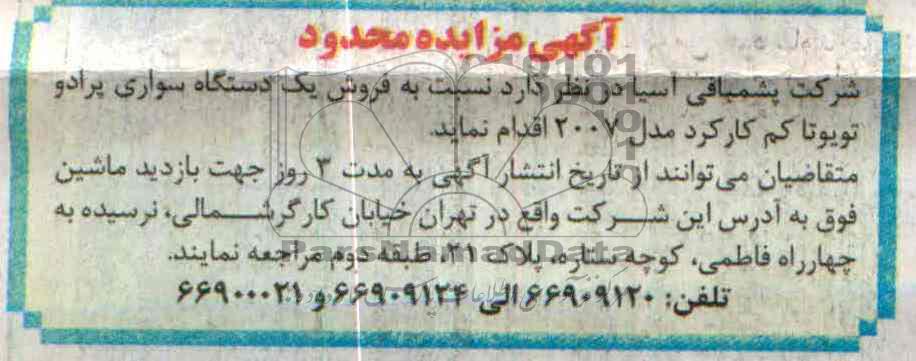 آگهی مزایده محدود
شرکت پشمبافی آسیا در نظر دارد نسبت به فروش یک دستگاه سواری پرادو
تویوتا کم کارکرد مدل ۲۰۰۷ اقدام نماید.
متقاضیان می‌توانند از تاریخ انتشار آگهی به مدت ۳ روز جهت بازدید ماشین
فوق به آدرس این شرکت واقع در تهران خیابان کارگرشمالی، نرسیده به
چهارراه فاطمی، کوچه ستاره، پلاک ۲۱، طبقه دوم مراجعه نمایند.
ParsNamadData
تلفن: ۶۶۹۰۹۱۲۰ الی ۶۶۹۰۹۱۲۴ و ۶۶۹۰۰۰۲۱